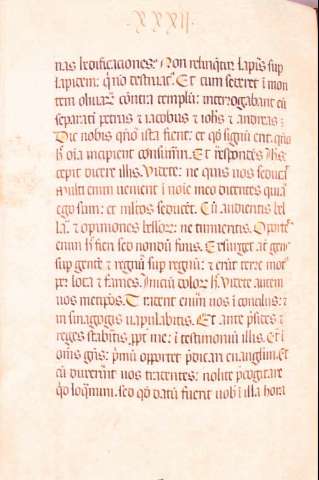 XXXII.
nas hedificaciones: Non relinq̃tur lapis sup
lapidem: q̃ nõ destruat᷑. Et cum sederet ĩ mon
tem olivarꝝ cõntra templũ: interrogabant eũ
separati petrus ⁊ iacobus ⁊ iohs̃ ⁊ andreas:
Dic nobis qñ ista fient: et qd̃ signũ erit: qñ
hẽ oĩa incipient consumari. Et respõdens ihs̃:
cepit dicere illis. Videte: ne quis vos seducat
Multi enim venient ĩ noĩe meo dicentes quia
ego sum: et mĩtos seducẽt. Cũ audieritis bel
la: ⁊ opiniones belloꝝ: ne timueritis. Oportet
enim hẽ fieri sed nondũ finis. Exsurget aĩ gens
sup gentẽ ⁊ regnũ sup regnũ: ⁊ erũt terre mot᷑
per loca ⁊ fames. Iniciũ doloꝝ hẽ. Videte autem
vos metip̃os. Tradent enim vos ĩ conciliis: ⁊
in sinagogis vapulabitis. Et ante p̃sides ⁊
reges stabitis ꝓpt̃ me: ĩ testimoniũ illis. Et ĩ
om̃s g̃tes: p̃mũ oportet p̃dicari euangliũm. Et
cũ duxerint vos tradentes: nolite p̃cogitare
qd̃ loq̃mini. sed qd̃ datũ fuerit vob̃ ĩ illa hora